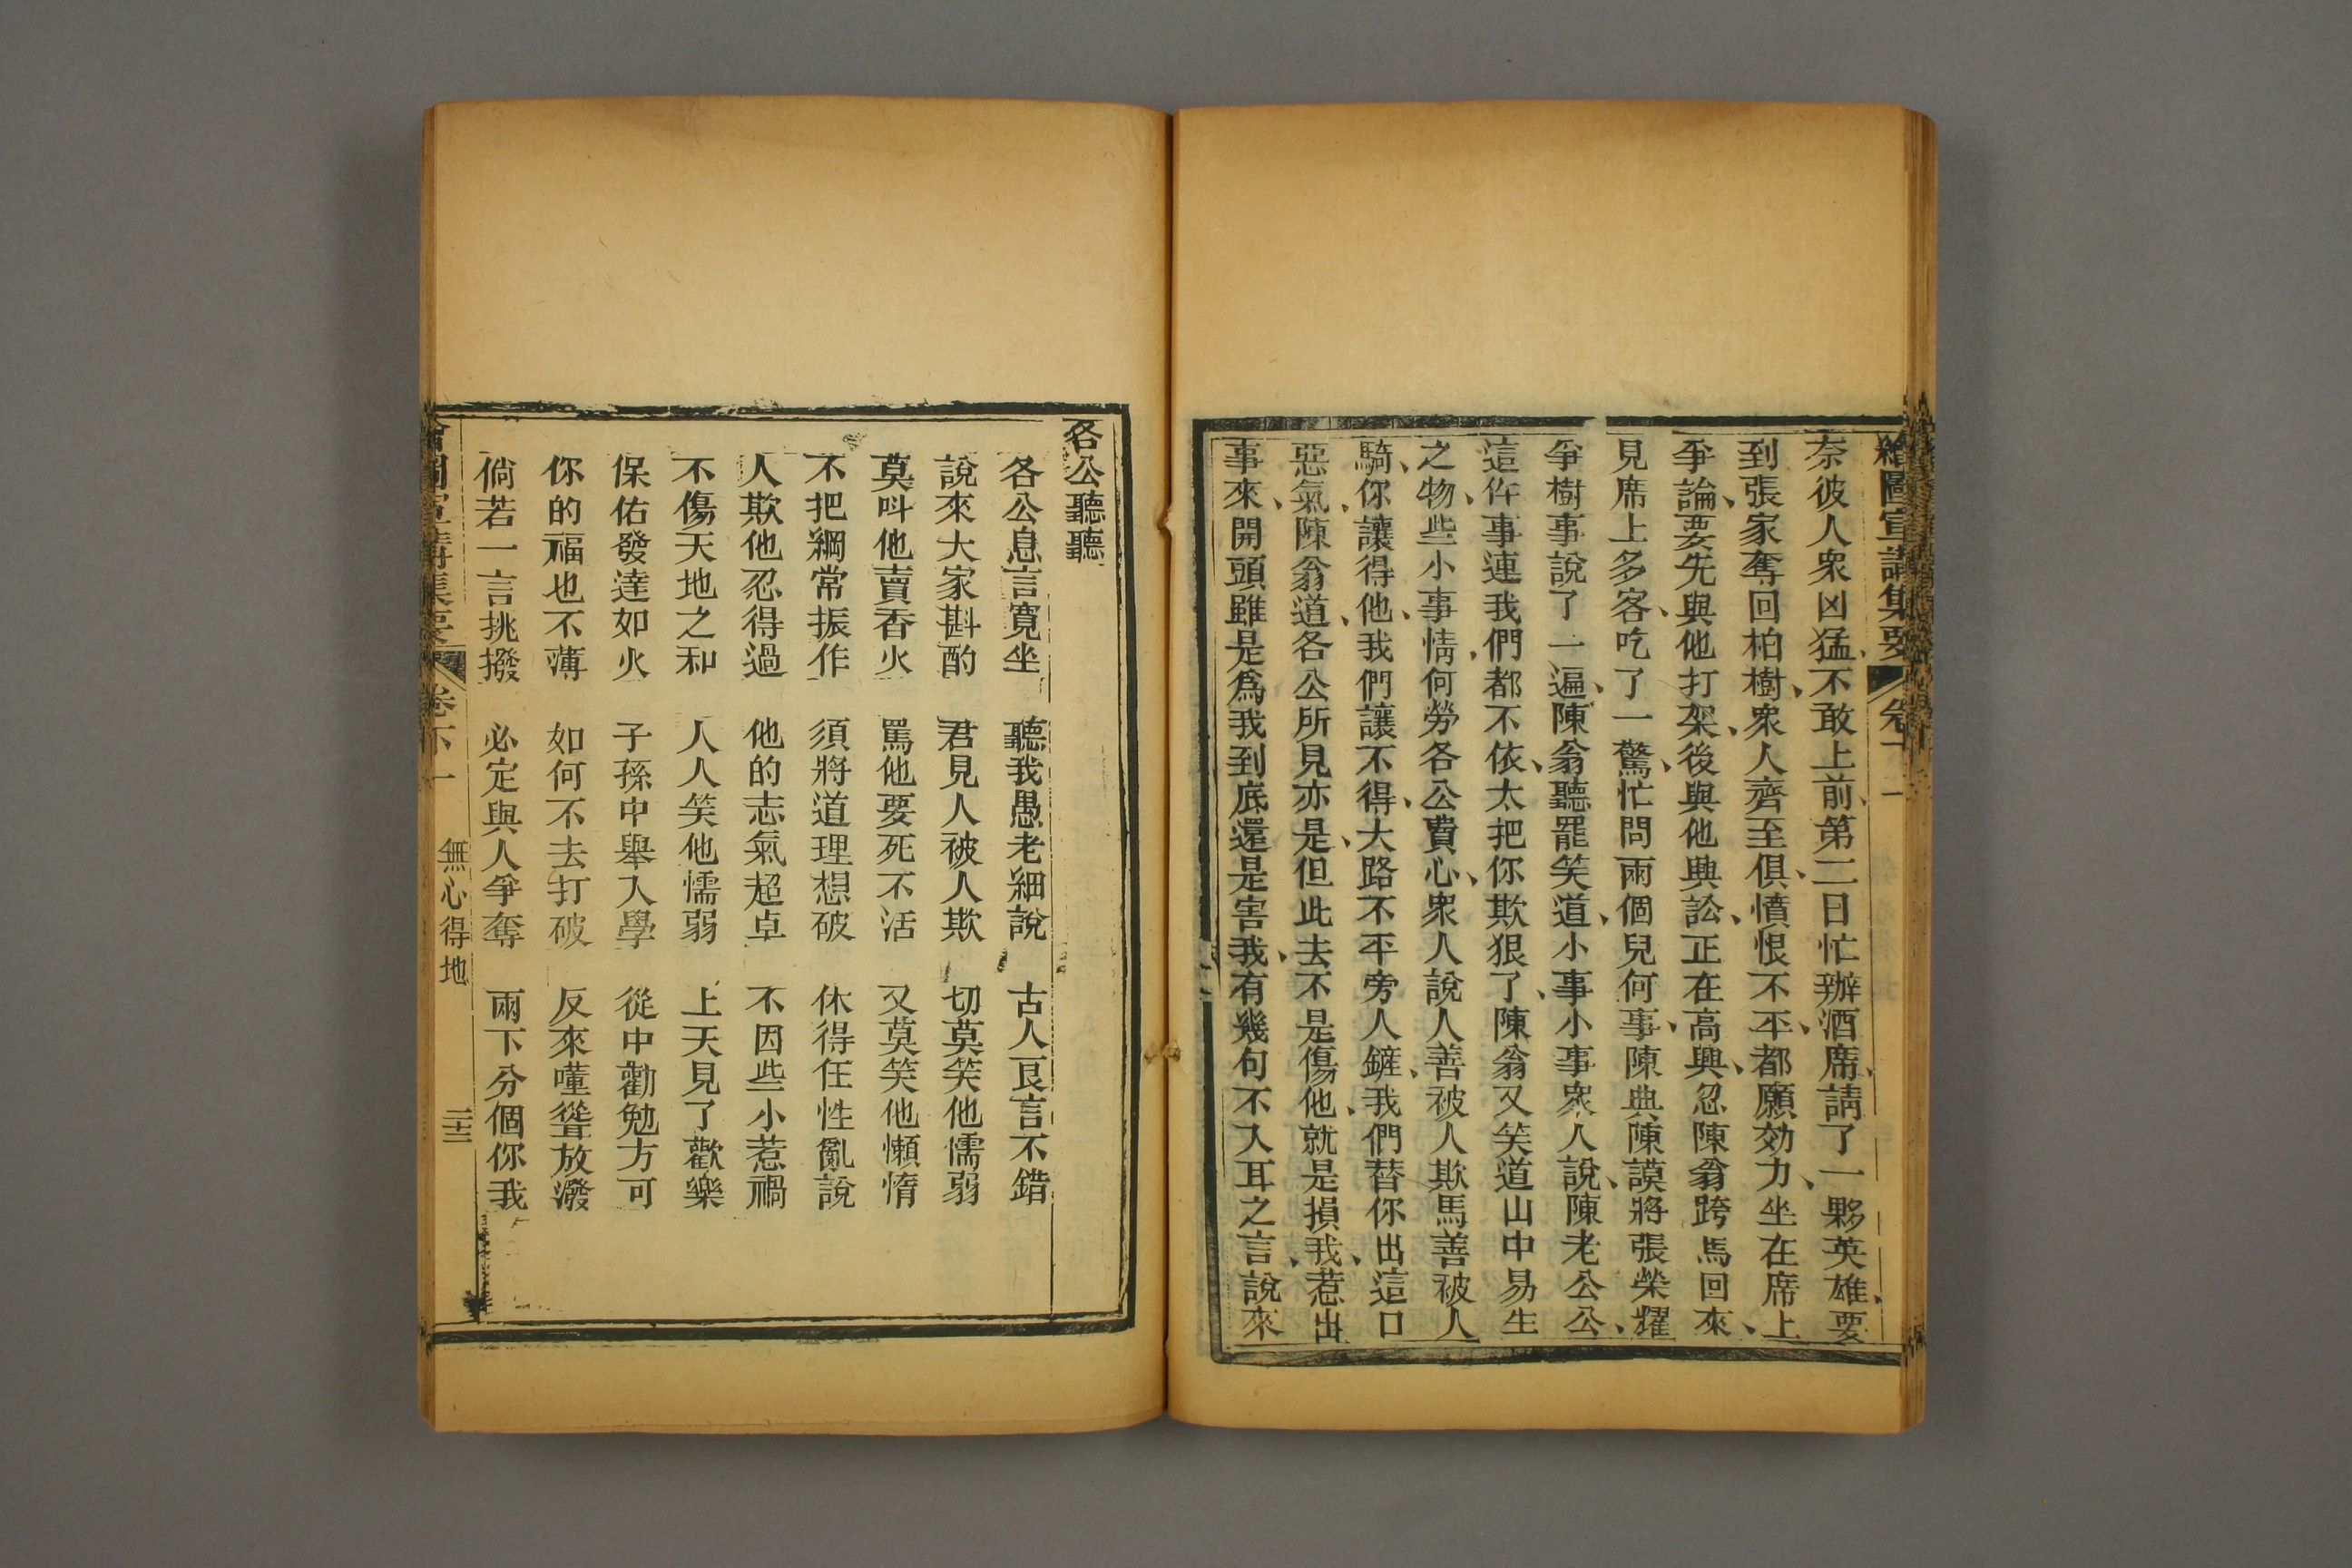 繪圖宣講集要 卷十一
奈彼人衆凶猛、不敢上前、第二日忙辦酒席、請了一夥英雄、要
到張家奪回柏樹、衆人齊至、俱憤恨不平、都願効力、坐在席上
爭論、要先與他打架、後與他興訟、正在高興、忽陳翁跨馬回來、
見席上多客、吃了一驚、忙問兩個兒何事、陳典陳謨將張榮耀
爭樹事說了一遍、陳翁聽罷笑道、小事小事衆人說、陳老公公、
這件事連我們都不依、太把你欺狠了、陳翁又笑道山中易生
之物、些小事情、何勞各公費心、衆人說人善被人欺馬善被人
騎、你讓得他、我們讓不得、大路不平旁人鏟、我們替你出這口
惡氣、陳翁道、各公所見亦是、但此去不是傷他、就是損我、惹出
事來、開頭雖是爲我到底還是害我、有幾句不入耳之言、說來
各公聽聽
各公息言寬坐 聽我愚老細說 古人良言不錯
說來大家斟酌 君見人被人欺 切莫笑他懦弱
莫呌他賣香火 罵他要死不活 又莫笑他懶惰
不把綱常振作 須將道理想破 休得任性亂說
人欺他忍得過 他的志氣超卓 不因些小惹禍
不傷天地之和 人人笑他懦弱 上天見了歡樂
保佑發達如火 子孫中舉入學 從中勸勉方可
你的福也不薄 如何不去打破 反來嗤聳放潑
倘若一言挑撥 必定與人爭奪 兩下分個你我
繪圖宣講集要 卷十一 無心得地 二十三